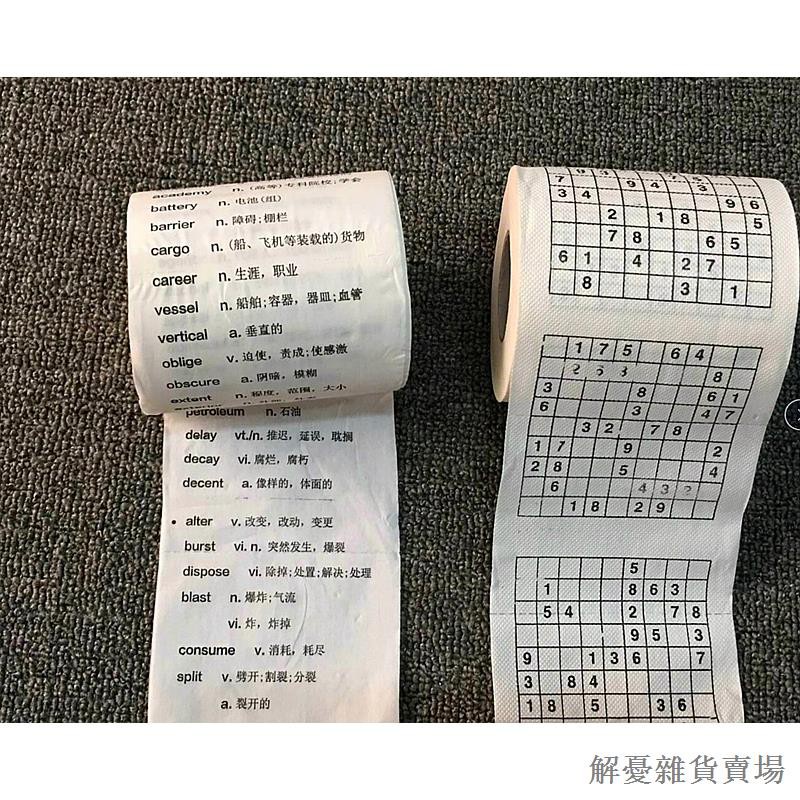 academy n. (高等)专科院校;学会
battery n. 电池(组)
barrier n. 障碍;棚栏
cargo n. (船、飞机等装载的)货物
career n. 生涯，职业
vessel n. 船舶;容器，器皿;血管
vertical a. 垂直的
oblige v. 迫使，责成;使感激
obscure a. 阴暗，模糊
extent n. 程度，范围，大小
petroleum n. 石油
delay vt./n. 推迟，延误，耽搁
decay vi. 腐烂，腐朽
decent a. 像样的，体面的
• alter v. 改变，改动，变更
burst vi. n. 突然发生，爆裂
dispose vi. 除掉;处置;解决;处理
blast n. 爆炸;气流
vi. 炸，炸掉
consume v. 消耗，耗尽
split v. 劈开;割裂;分裂
a. 裂开的
3 4 9 4 3
2 1 8 9 6
7 8 6 5 5
6 1 4 2 7
8 3 1
1 7 5 6 4
2 6 3 8
3 8 6 1
6 3 4 7
3 2 7 8
1 7 9 2
2 8 5 4
6 4 3 2
1 8 2 9
5
1 8 6 3
5 4 2 7 8
9 5 3
9 1 3 6 7
3 8 4
1 8 5 3 6
解憂雜貨賣場